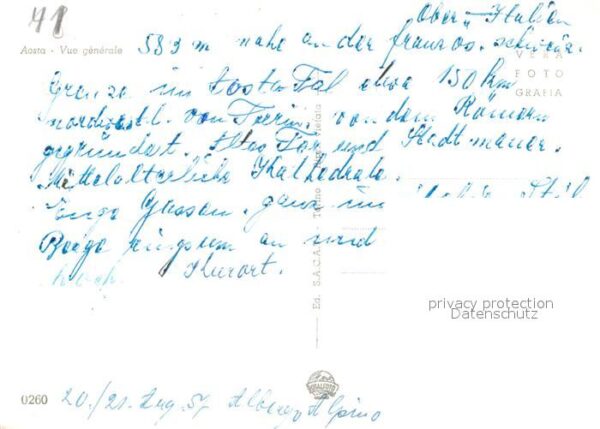 41
Ober-Italien
Aosta - Vue générale
583 m nahe an der französ. schweiz.
VERA
FOTO
GRAFIA
Grenze im Aosta Tal etwa 150 km
nordwestl. von Turin. von den Römern
gegründet. Altes Tor und Stadtmauer.
Mittelalterliche Kathedrale.
Enge Gassen. ganz im
Berge ringsum an und
hoch. Kurort.
Ed. S.A.C.A.T. - Torino
privacy protection
Datenschutz
0260
20./21. Aug. 57 Albergo Alpino